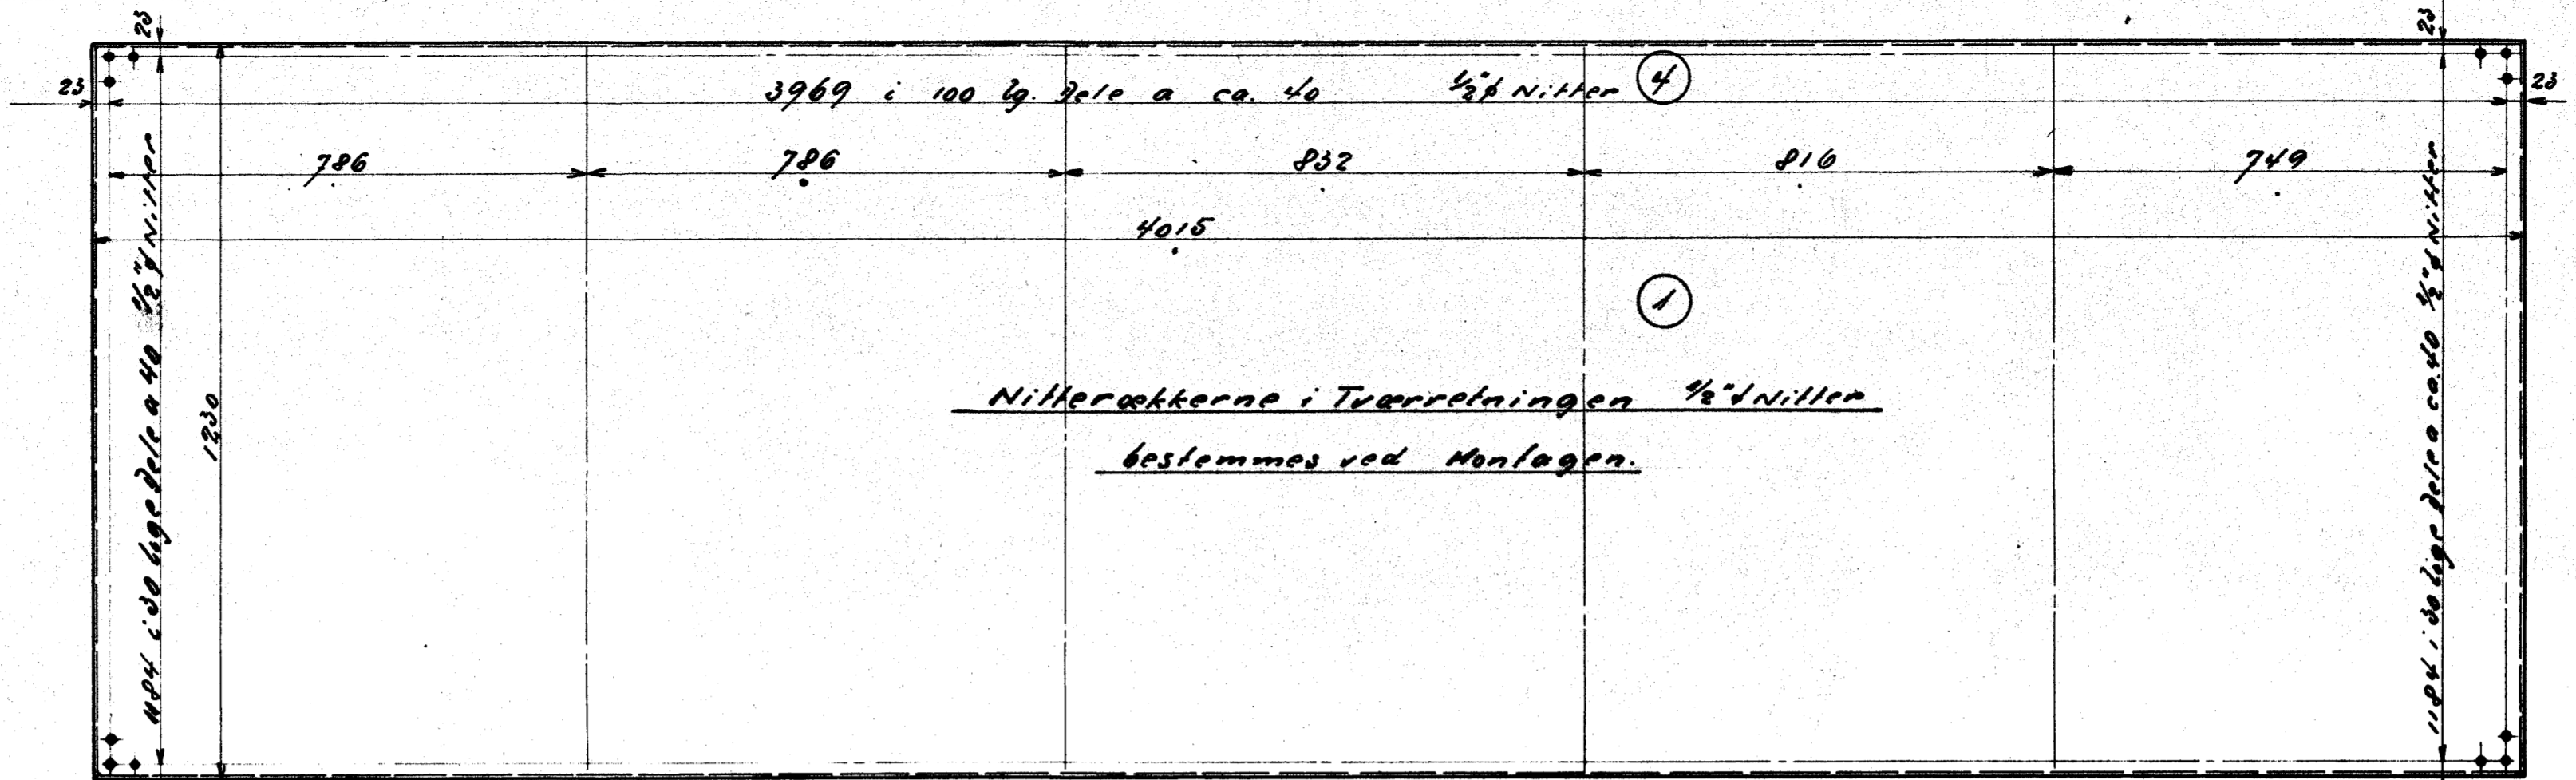 23
23
23
3969 i 100 lg. Dele a ca. 40 1/2"ø Nitter 4
23
786 786 832 816 749
4015
1
1184 i 30 lige Dele a 40 1/2"ø Nitter
1230
Nitterækkerne i Tværretningen 1/2"ø Nitter
bestemmes ved Montagen.
1184 i 30 lige Dele a ca. 40 1/2"ø Nitter